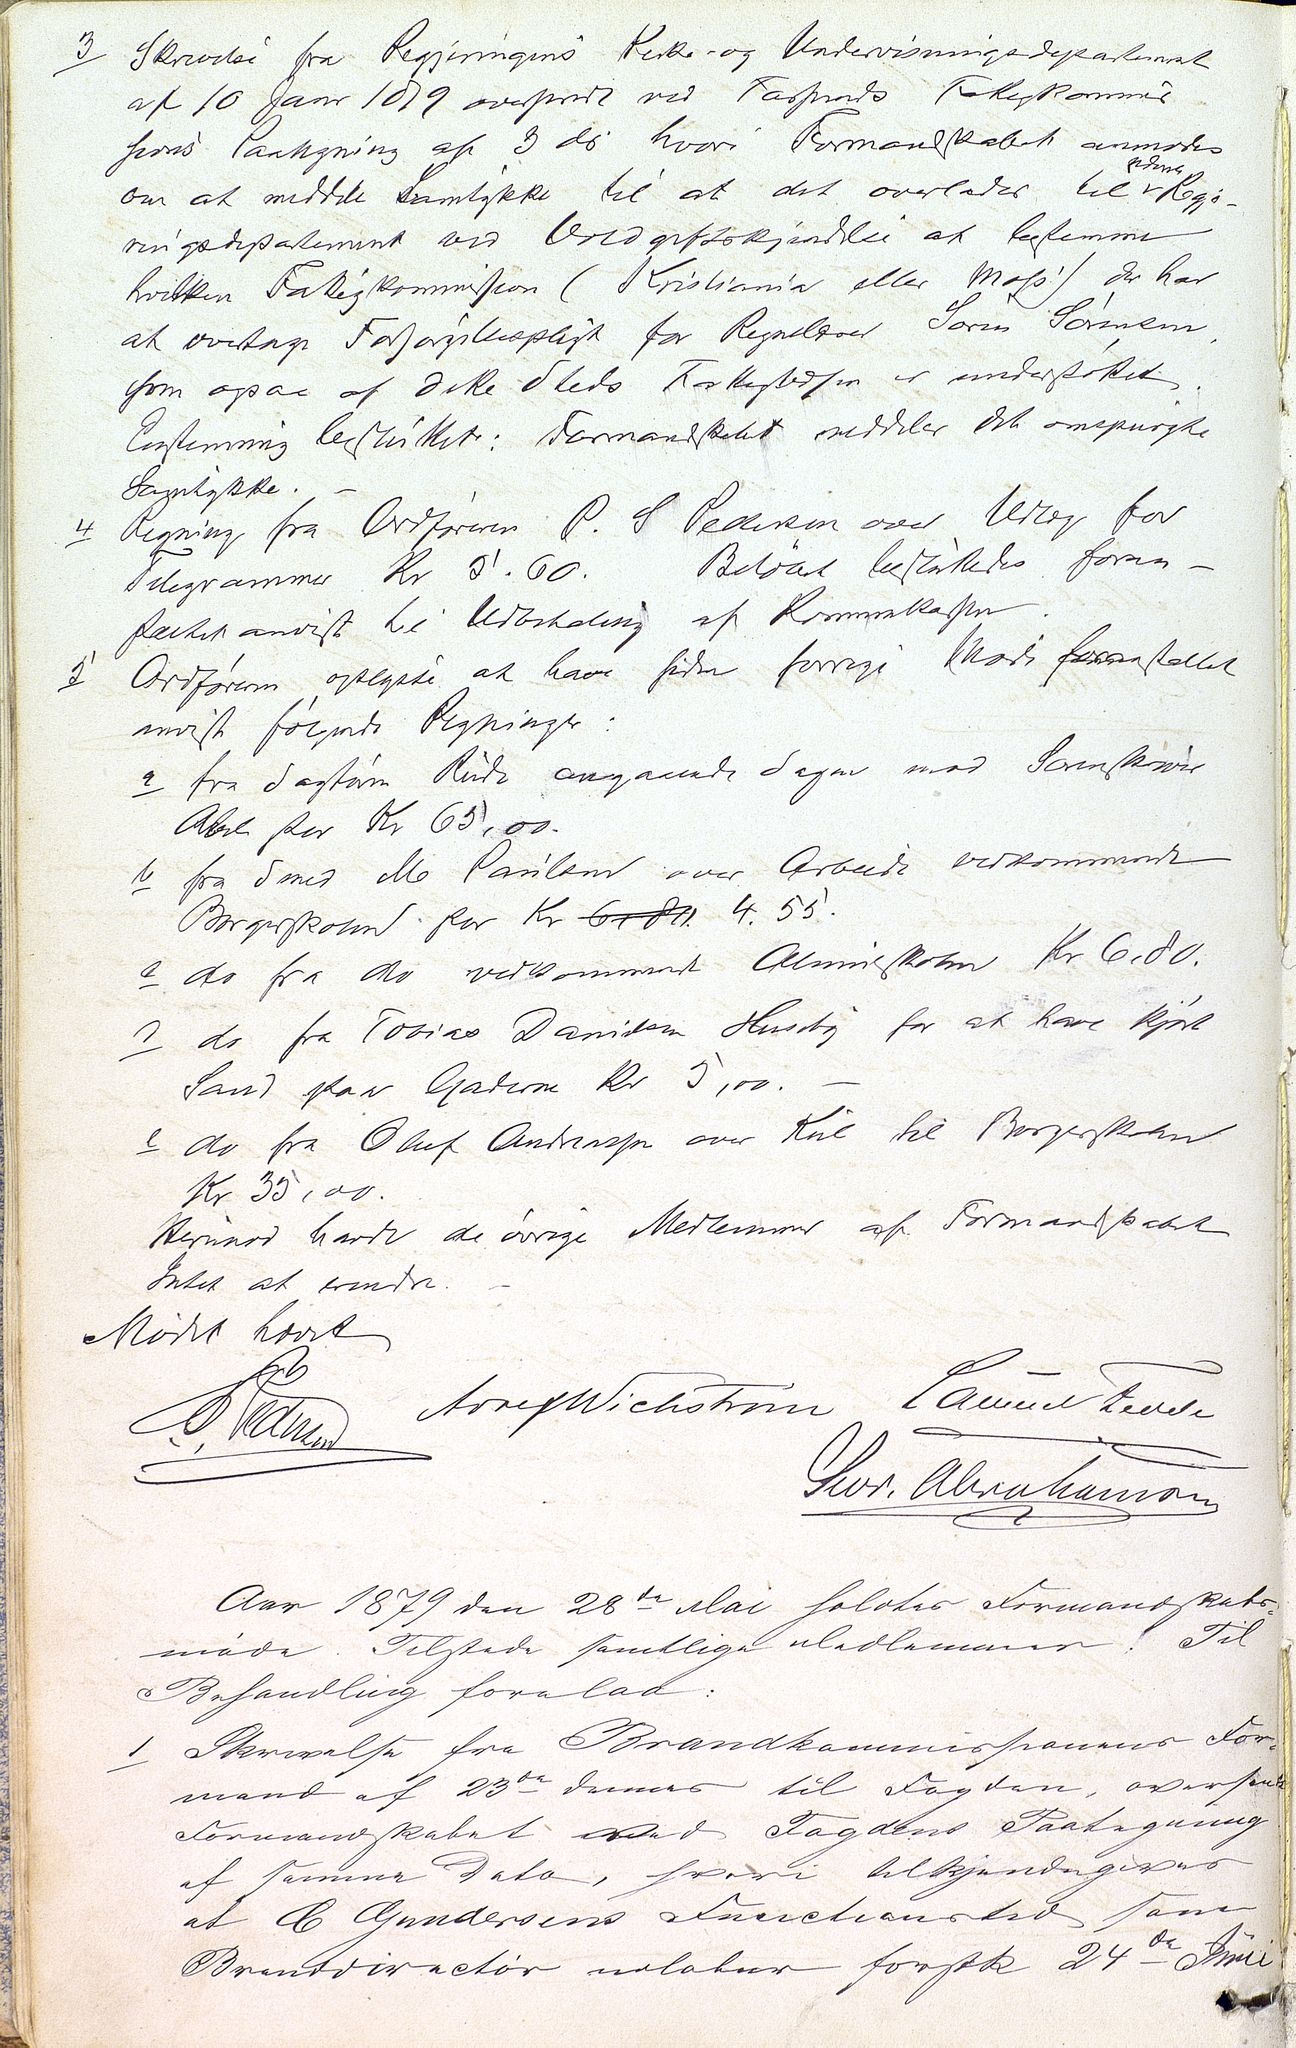 3 Skrivelse fra Regjeringens Kirke- og Undervisningsdepartement
af 10 Janr 1879 oversendt ved Farsunds Fattigkommis
sions Paategning af 3 ds hvori Formandskabet anmodes
om at meddele Samtykke til at det overlades til Regje-
ringsdepartement ved Voldgiftskjendelse at bestemme
hvilken Fattigkommission (Kristiania eller Moss) der har
at overtage Forsørgelsespligt for Søren Sörensen,
som ogsaa af dette Steds Fattigvæsen er understøttet.
Enstemmig besluttet: Formandskabet meddeler det omspurgte
Samtykke. —
4 Regning fra Ordføreren P. S Pedersen over Udlæg for
Telegrammer Kr 5.60. Beløbet besluttedes foran-
staltet anvist til Udbetaling af Kommunekassen.
5 Ordføreren oplyste at have siden forrige Møde foranstaltet
anvist følgende Regninger:
a fra Sagfører angaaende Sagen mod Sorenskriver
Abel stor Kr 65,00.
b fra Smed M Paulsen over Arbeide vedkommende
Borgerskolen stor Kr 6,80. 4.55.
c do fra do vedkommende Almueskolen Kr 6,80.
d do fra Tobias Danielsen Huseby for at have kjørt
Sand paa Gaderne Kr 5,00. —
e do fra Oluf Andreassen over Kul til Borgerskolen
Kr 35,00.
Herimod havde de övrige Medlemmer af Formandskabet
Intet at erindre. —
Mødet hævet
P. S. Pedersen Wichstrøm Samuel
Abrahamson
Aar 1879 den 28de Mai holdtes Formandskabs-
møde. Tilstede samtlige Medlemmer. Til
Behandling forelaa:
1 Skrivelse fra Brandkommissionens For-
mand af 23de dennes til Fogden, oversendt
Formandskabet med Fogdens Paategning
af samme Dato, hvori tilkjendegives
at C Gundersens Functionstid som
Branddirectör udløber förstk 24de Juni